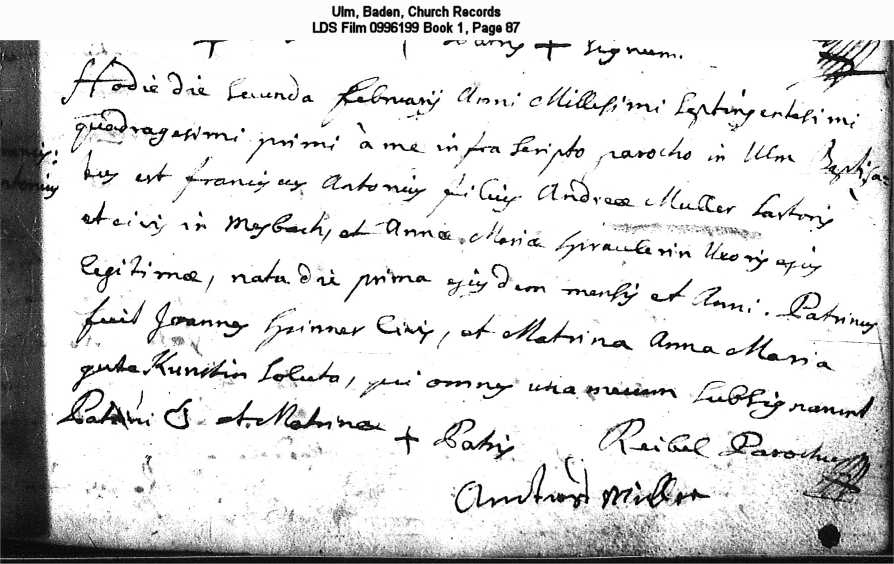 Ulm, Baden, Church Records
LDS Film 0996199 Book 1, Page 87
Patris + Signum.
Hodie die secunda februarij Anni Millesimi Septingentesimi
quadragesimi primi à me infra scripto parocho in Ulm Baptiza=
tus est franciscus Antonius filius Andreæ Muller Sartoris
et civis in Mesbach, et Annæ Mariæ Uxoris ejus
legitimæ, nata die prima ejusdem mensis et Anni. Patrinus
fuit Joannes Spinner Civis, et Matrina Anna Maria
Soluta, qui omnes una mecum subsignarunt
Patrini et Matrinæ + Patris Reibel Parochus
Muller